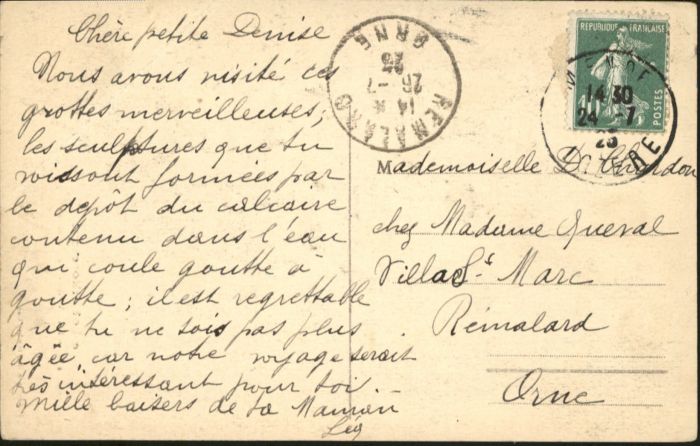 Chère petite Denise
Nous avons visité ces
grottes merveilleuses,
les sculptures que tu
vois sont formées par
le dépôt du calcaire
contenu dans l'eau
qui coule goutte à
goutte ; il est regrettable
que tu ne sois pas plus
âgée car notre voyage serait
très intéressant pour toi.
Mille baisers de ta Maman
REMALARD
14 *
26 -7
25
ORNE
REPUBLIQUE FRANÇAISE
POSTES
10
MENDE
14 30
24 -7
25
Mademoiselle D.
chez Madame Queval
Villa St Marc
Rémalard
Orne